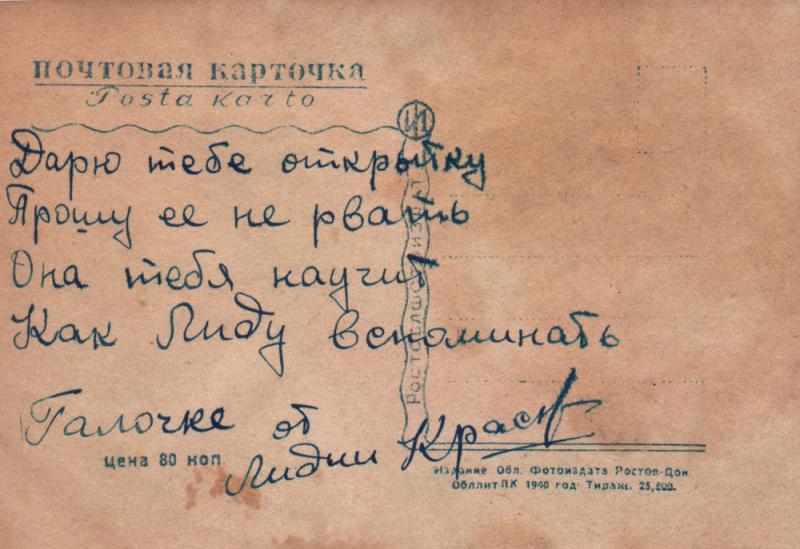 ПОЧТОВАЯ КАРТОЧКА
Posta karto
Дарю тебе открытку
Прошу ее не рвать
Она тебя научит
Как Лиду вспоминать
Галочке от
Лидии
цена 80 коп.
Издание Обл. Фотоиздата Ростов-Дон.
ОбллитПК 1940 год. Тираж. 25,000.